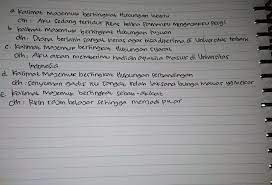 a. Kalimat Majemuk bertingkat Hubungan waktu
cth : Aku sedang tertidur ketika Pamanmu pergi
b. kalimat Majemuk bertingkat Hubungan tujuan
cth : Diana berlatih sangat keras agar bisa diterima di Universitas terbaik
c. Kalimat Majemuk bertingkat Hubungan syarat
cth : Aku akan memberimu hadiah apabila masuk di Universitas
Indonesia
d. Kalimat Majemuk bertingkat Hubungan perbandingan
cth : Senyuman gadis itu sangat indah laksana bunga mawar yg mekar
e. Kalimat Majemuk bertingkat sebab-akibat
cth : Rizki rajin belajar sehingga menjadi pintar